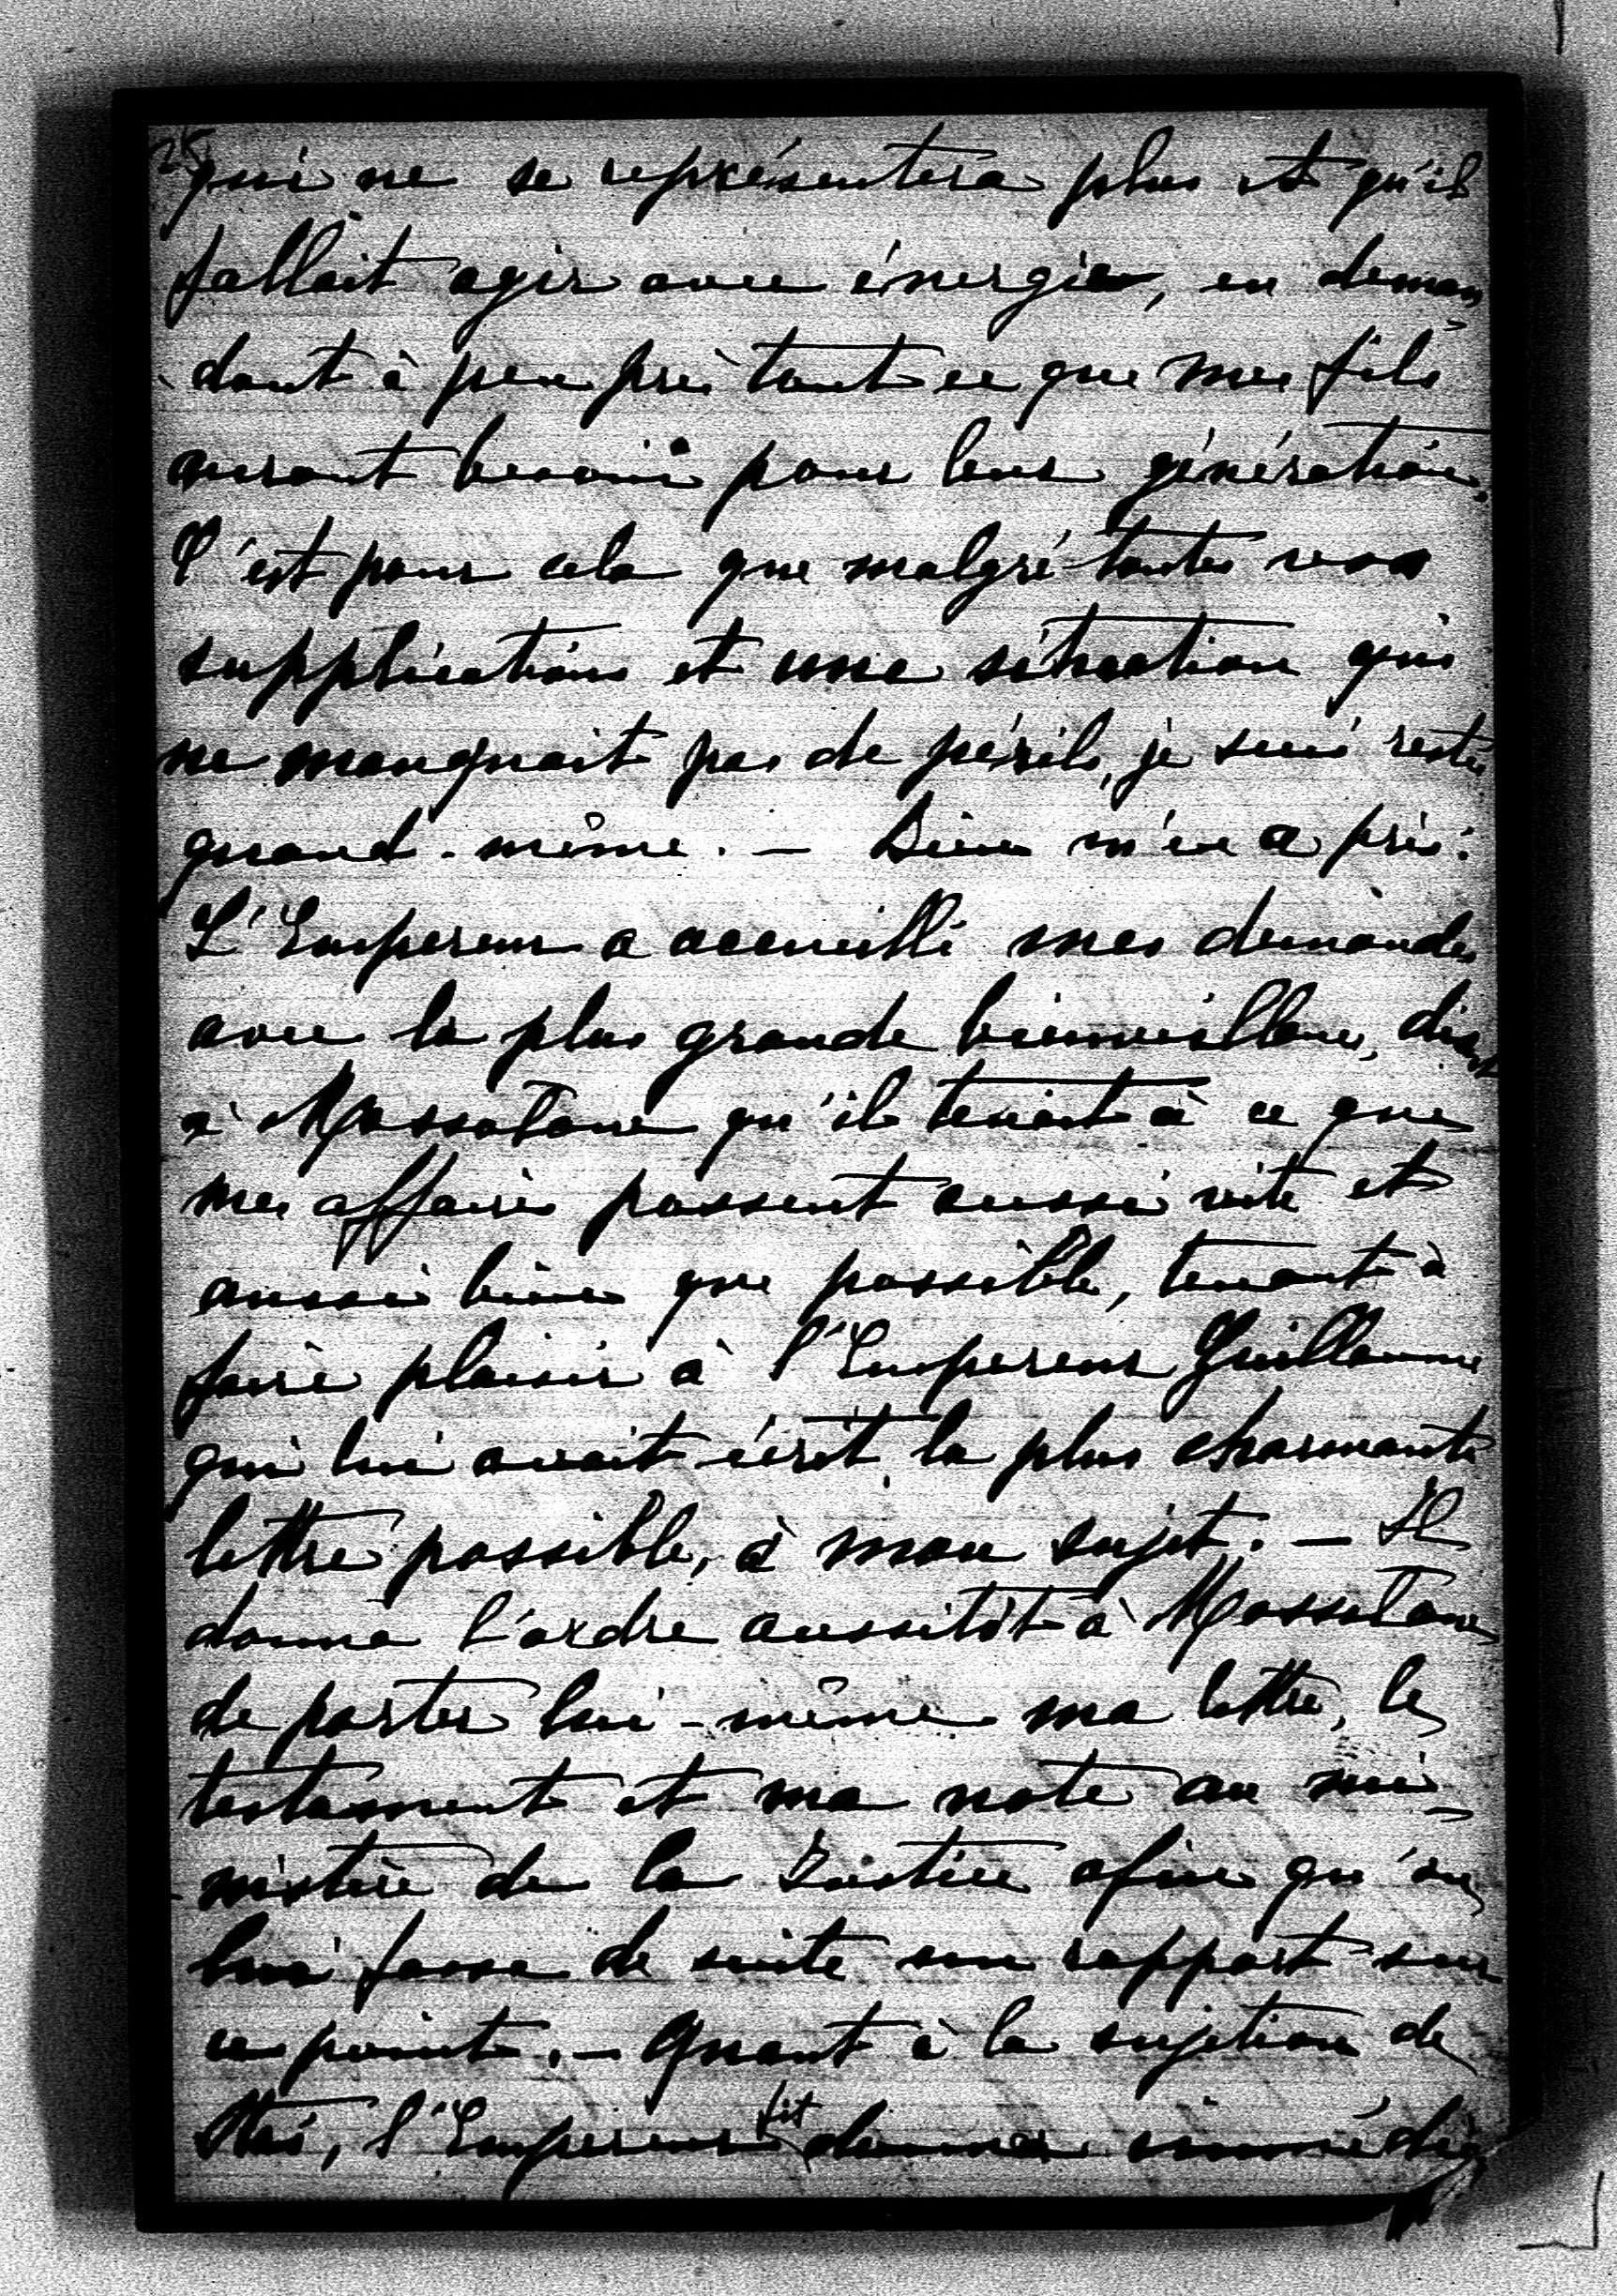 25
qui ne se représentera plus et qu'il
fallait agir avec énergie, en deman-
dant à peu près tout ce que mes fils
auront besoin pour leur génération.
C'est pour cela que malgré toutes vos
supplications et une situation qui
ne manquait pas de périls, je suis restée
quand-même. — Dieu m'en a
L'Empereur a accueilli mes demandes
avec la plus grande bienveillance, disant
à Massolane qu'il tenait à ce que
mes affaires passent aussi vite et
aussi bien que possible, tenant à
faire plaisir à l'Empereur Guillaume
qui lui avait écrit la plus charmante
lettre possible, à mon sujet. — Il
donna l'ordre aussitôt à Massolane
de porter lui-même ma lettre, le
testament et ma note au mi-
nistère de la Justice afin qu'on
lui fasse de suite un rapport sur
ce point. — Quant à la sujétion de
l'Empereur fit donner immédia